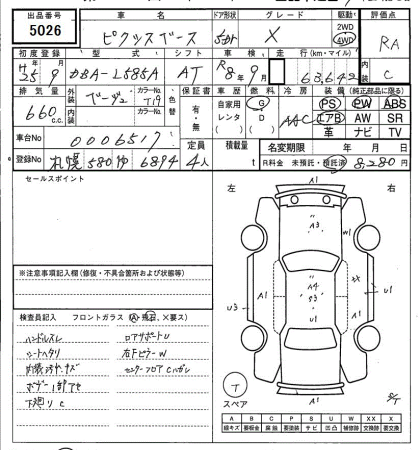 出品番号 車名 ドア形状 グレード 駆動 評価点
5026 ピクシスベース 5DR X 2WD 4WD RA
初度登録 型式 シフト 車検 走行(km・マイル) 内装
H25 9月 DBA-L585A AT R8年9月 63,642 C
排気量 外装 カラーNo. 色替 保証書 車歴 燃料 冷房 装備(純正部品に限る)
660c.c. T19 有・無 自家用 G AAC PS PW ABS
内装 カラーNo. レンタ D エアB AW SR
革 ナビ TV
車台No 0006517 定員 積載量 名変期限 年 月 日
登録No 札幌 580 ゆ 6894 4人 t R料金 未預託・預託済 8,280円
セールスポイント
左 右
※注意事項記入欄(修復・不具合箇所および状態等)
検査員記入 フロントガラス(A・飛石、×要ス)
ハンドルスレ ロアサポートU
シートヘタリ 右FピラーW
内装汚れ キズ センターフロアCハガレ
下廻りC
A1 A3 W1 A1 A4 S3 U3 A1 U1 XX U1 A1
スペア
A B C P S U W X XX X
線キズ 要板金 腐蝕 要塗装 サビ 凹凸 補修跡 交換跡 要交換